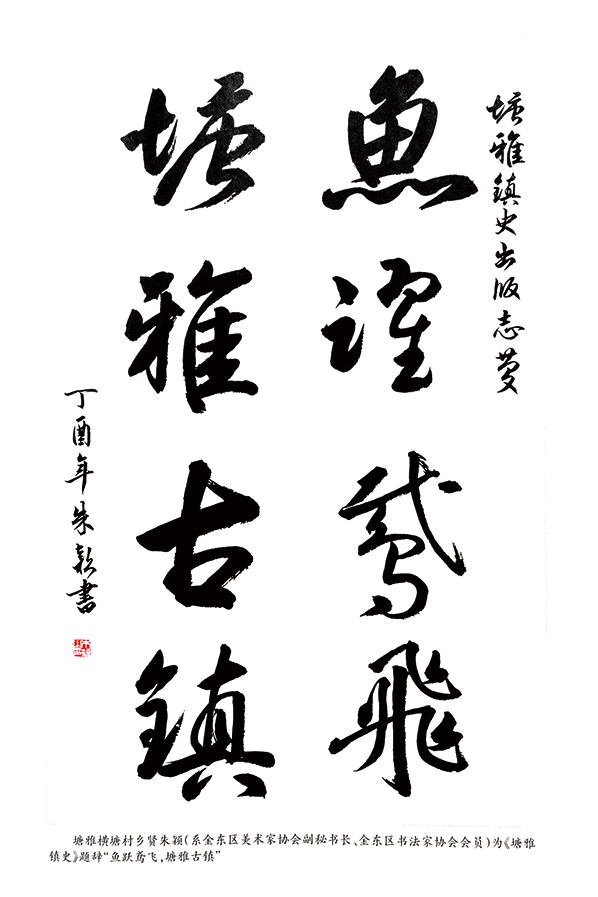 塘雅鎮史出版志慶
魚躍鳶飛
塘雅古鎮
丁酉年朱穎書
塘雅横塘村乡贤朱颖(系金东区美术家协会副秘书长、金东区书法家协会会员)为《塘雅
镇史》题辞“鱼跃鸢飞,塘雅古镇”